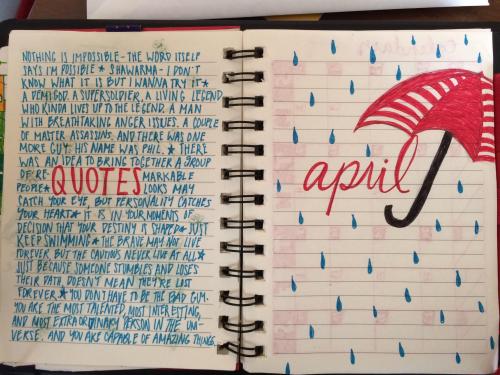 NOTHING IS IMPOSSIBLE - THE WORD ITSELF
SAYS I'M POSSIBLE ★ SHAWARMA - I DON'T
KNOW WHAT IT IS BUT I WANNA TRY IT ★
A DEMIGOD. A SUPERSOLDIER, A LIVING LEGEND
WHO KINDA LIVES UP TO THE LEGEND. A MAN
WITH BREATHTAKING ANGER ISSUES. A COUPLE
OF MASTER ASSASSINS. AND THERE WAS ONE
MORE GUY. HIS NAME WAS PHIL. ★ THERE
WAS AN IDEA TO BRING TOGETHER A GROUP
OF RE- MARKABLE
QUOTES
PEOPLE ★ LOOKS MAY
CATCH YOUR EYE, BUT PERSONALITY CATCHES
YOUR HEART ★ IT IS IN YOUR MOMENTS OF
DECISION THAT YOUR DESTINY IS SHAPED ★ JUST
KEEP SWIMMING ★ THE BRAVE MAY NOT LIVE
FOREVER, BUT THE CAUTIOUS NEVER LIVE AT ALL ★
JUST BECAUSE SOMEONE STUMBLES AND LOSES
THEIR PATH, DOESN'T MEAN THEY'RE LOST
FOREVER ★ YOU DON'T HAVE TO BE THE BAD GUY.
YOU ARE THE MOST TALENTED, MOST INTERESTING,
AND MOST EXTRAORDINARY PERSON IN THE UNI-
VERSE. AND YOU ARE CAPABLE OF AMAZING THINGS.
april